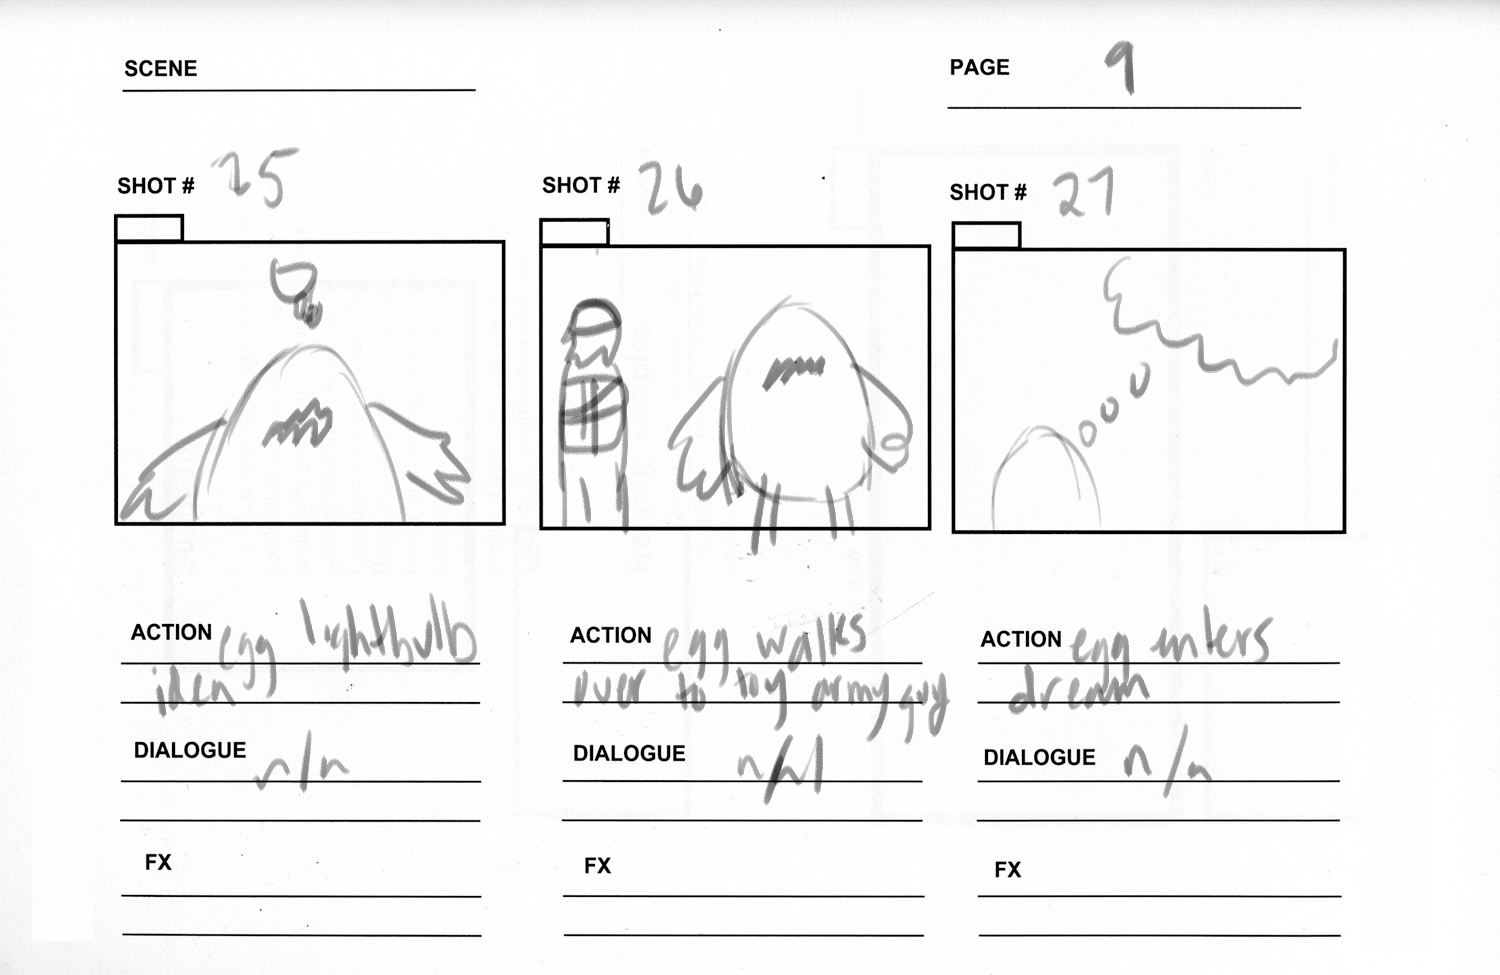 SCENE
PAGE 9
SHOT # 25
SHOT # 26
SHOT # 27
ACTION egg lightbulb
idea
DIALOGUE n/a
FX
ACTION egg walks
over to toy army guy
DIALOGUE n/a
FX
ACTION egg enters
dream
DIALOGUE n/a
FX